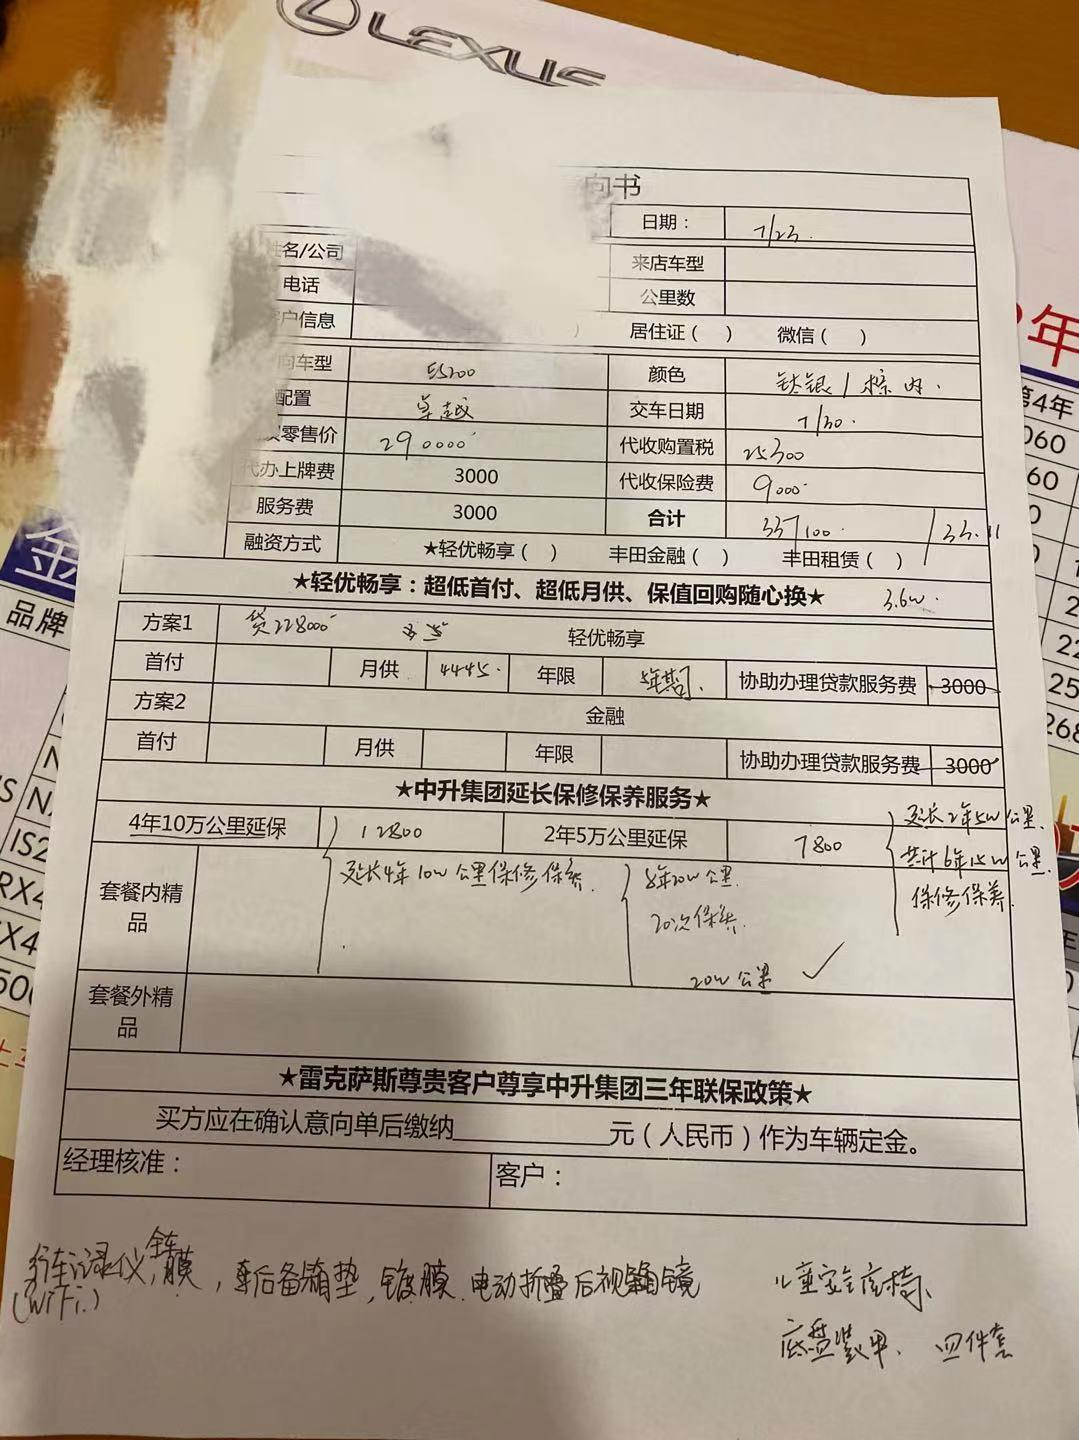 LEXUS
向书
日期： 7/23.
姓名/公司 来店车型
电话 公里数
户信息 ） 居住证（ ） 微信（ ）
向车型 ES200 颜色 钛银/棕内.
配置 卓越 交车日期 7/30.
零售价 290000 代收购置税 25300
代办上牌费 3000 代收保险费 9000
服务费 3000 合计 337100. /33.11
融资方式 ★轻优畅享（ ） 丰田金融（ ） 丰田租赁（ ）
★轻优畅享：超低首付、超低月供、保值回购随心换★ 3.6w.
方案1 贷228000 轻优畅享
首付 月供 4445. 年限 5年期. 协助办理贷款服务费 3000
方案2 金融
首付 月供 年限 协助办理贷款服务费 3000
★中升集团延长保修保养服务★
4年10万公里延保 12800 2年5万公里延保 7800
延长2年5W公里.
共计6年15W公里.
保修保养.
套餐内精品
延长4年10W公里保修保养.
8年20W公里.
20次保养.
20W公里 ✓
套餐外精品
★雷克萨斯尊贵客户尊享中升集团三年联保政策★
买方应在确认意向单后缴纳____________元（人民币）作为车辆定金。
经理核准： 客户：
行车记录仪，全车膜，车后备箱垫，镀膜.电动折叠后视镜
(WiFi.)
儿童安全座椅、
底盘装甲、 四件套
年
第4年
060
金
品牌
IS2
RX4